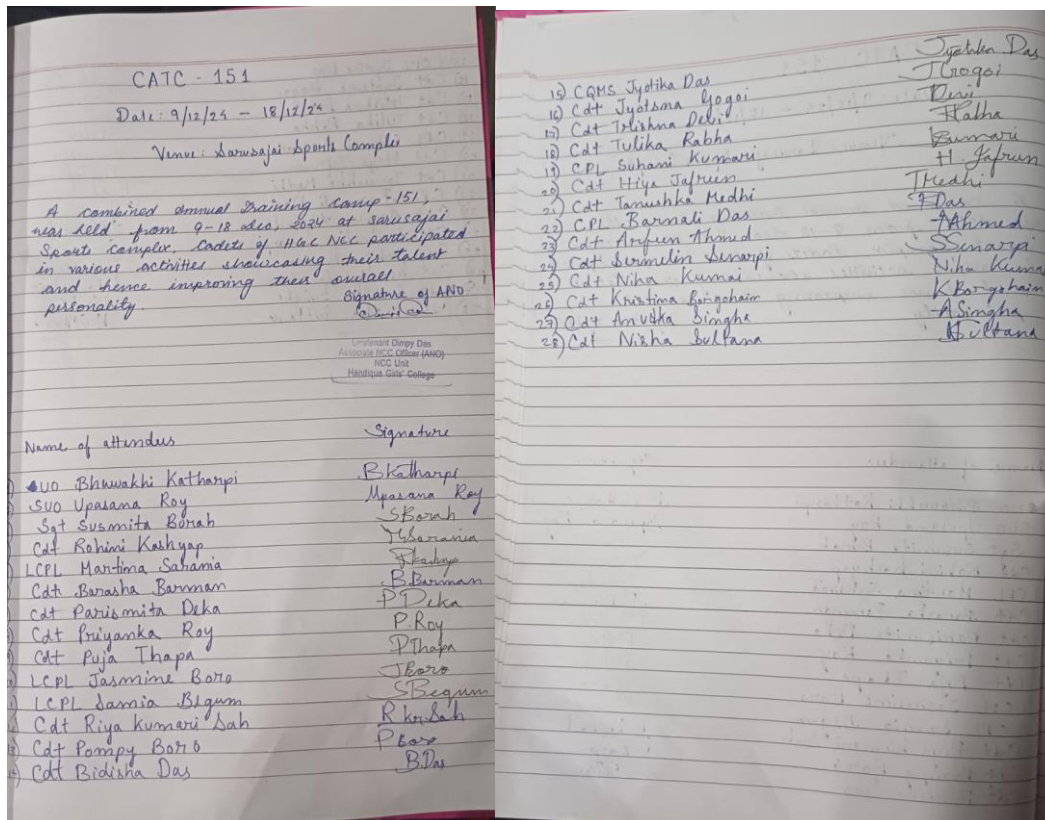 CATC - 151
Date: 9/12/24 - 18/12/24
Venue: Sarusajai Sports Complex
A combined annual Training camp-151,
was held from 9-18 dec, 2024 at sarusajai
Sports complex. Cadets of HGC NCC participated
in various activities showcasing their talent
and hence improving their overall
personality.
Signature of ANO
Lieutenant Dimpy Das
Associate NCC Officer (ANO)
NCC Unit
Handique Girls' College
Name of attendees Signature
SUO Bhuwakhi Katharpi BKatharpi
SUO Upasana Roy Upasana Roy
Sgt Susmita Borah SBorah
Cdt Rohini Kashyap
LCPL Mantima Saharia
Cdt Barasha Barman B.Barman
Cdt Parismita Deka PDeka
Cdt Priyanka Roy P.Roy
Cdt Puja Thapa PThapa
LCPL Jasmine Boro JBoro
LCPL Samia Begum SBegum
Cdt Riya Kumari Sah R kr.Sah
Cdt Pompy Boro PBoro
14) Cdt Bidisha Das B.Das
15) CQMS Jyotika Das Jyotika Das
16) Cdt Jyotsma Gogoi JGogoi
17) Cdt Trishna Devi Devi
18) Cdt Tulika Rabha TRabha
19) CPL Suhani Kumari Kumari
20) Cdt Hiya Jafrin H. Jafrin
21) Cdt Tanushka Medhi TMedhi
22) CPL Barnali Das Das
23) Cdt Arfeen Ahmed AAhmed
24) Cdt Sermelin Senarpi SSenarpi
25) Cdt Niha Kumai Niha Kuma
26) Cdt Kristina Borgohain K Borgohain
27) Cdt Anuska Singha ASingha
28) Cdt Nisha Sultana NSultana